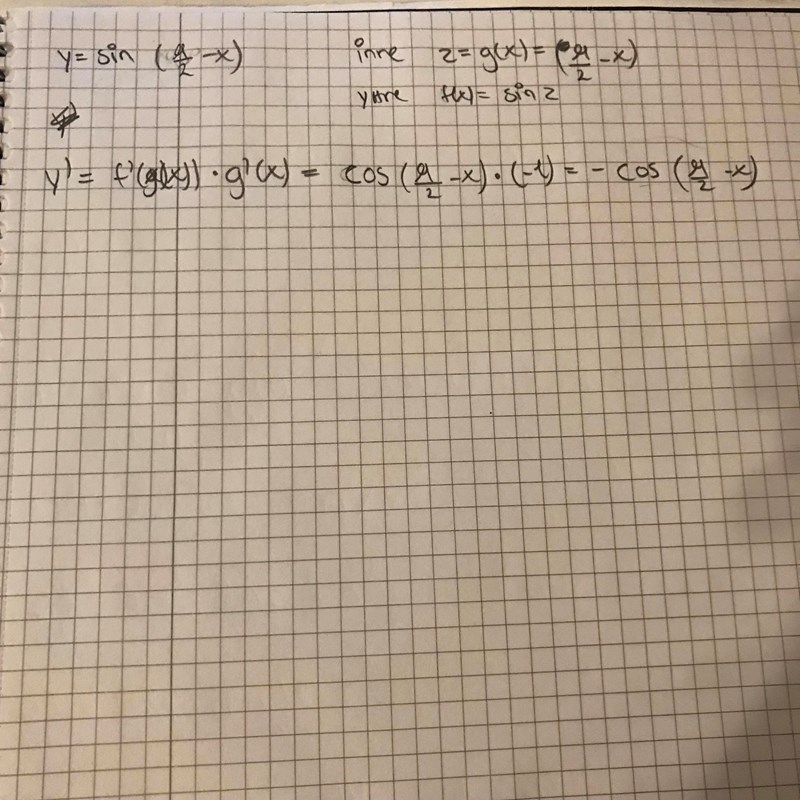 y = sin (π/2 - x) inre z = g(x) = (π/2 - x)
yttre f(x) = sin z
y' = f'(g(x)) · g'(x) = cos (π/2 - x) · (-1) = - cos (π/2 - x)